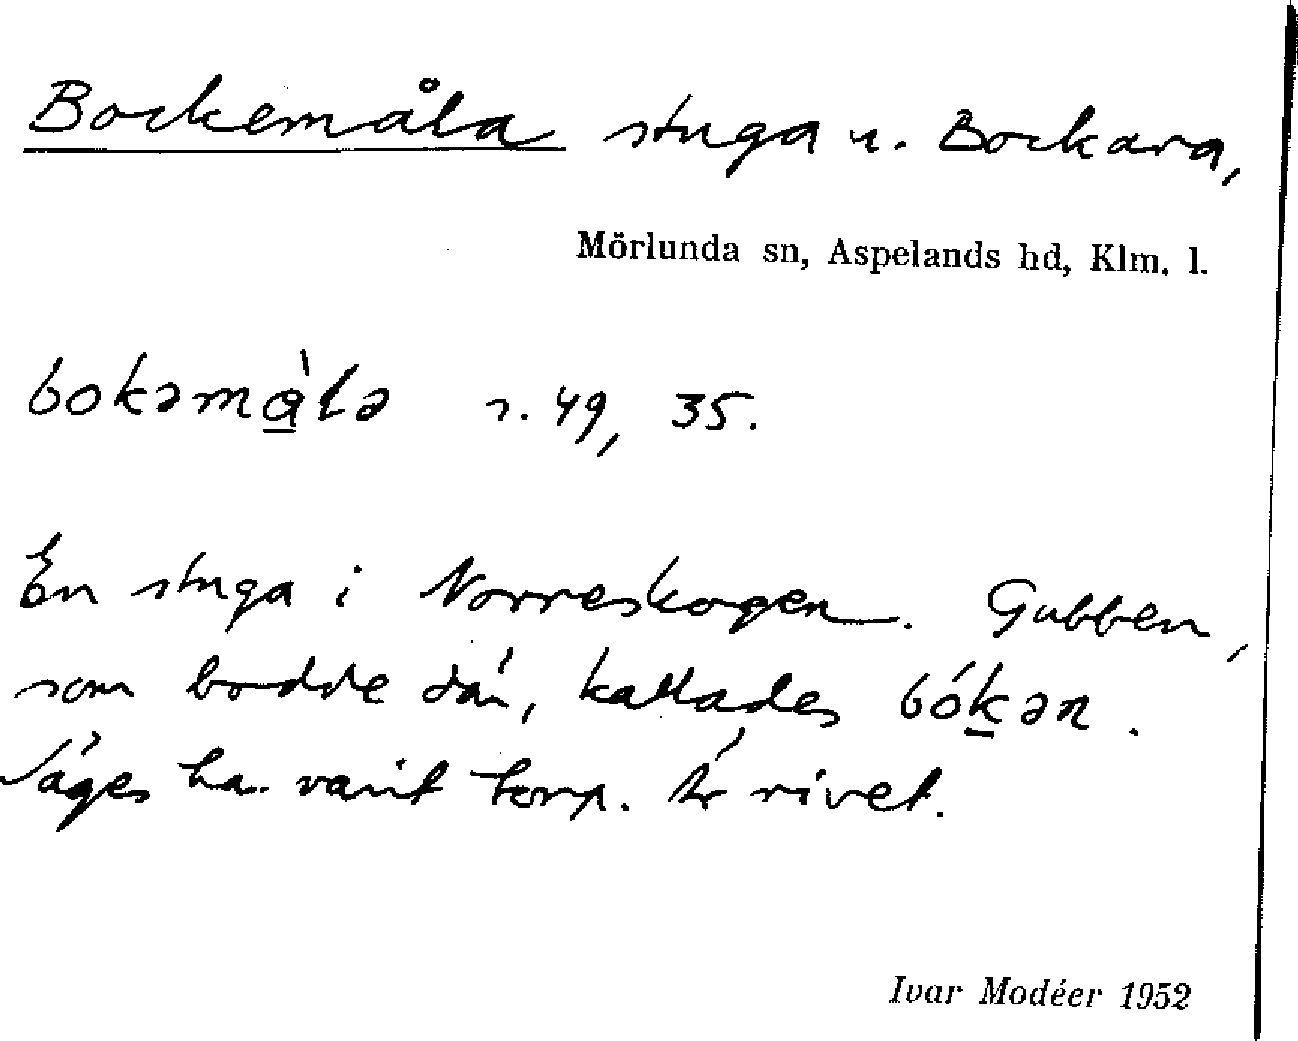 Bockemåla stuga u. Bockara,
Mörlunda sn, Aspelands hd, Klm. l.
bokəmàlə s. 49, 35.
En stuga i Norreskogen. Gubben,
som bodde där, kallades bókən.
Säges ha varit torp. Är rivet.
Ivar Modéer 1952